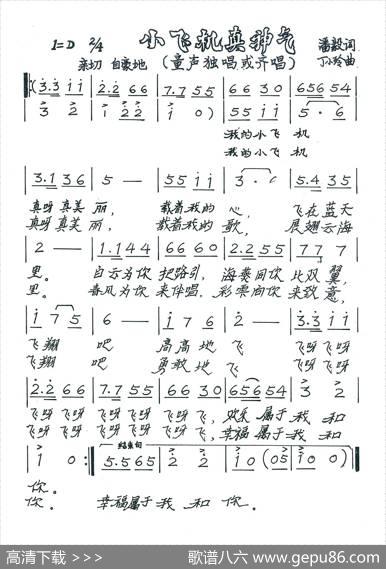 小飞机真神气
1=D 2/4
(童声独唱或齐唱)
潘毅词
亲切 自豪地
3.3 1 1 | 2.2 6 6 | 7.7 5 5 | 6 6 3 0 | 6 5 6 5 4
3 2 | 1 2 2 | 1 0 ) | 5 5 1 1 | 5 · 6
我的小飞 机
我的小飞 机
3.1 3 6 | 5 — | 5 5 1 1 | 3 · | 5.4 3 5
真呀真美 丽, 载着我的 心, 飞在蓝天
真呀真美 丽, 载着我的 歌, 展翅云海
2 — | 1.1 4 4 | 6 6 6 0 | 2.2 5 5 | 7 7 7
里。 白云为你 把路引, 海燕同你 比双 翼,
里。 春风为你 来伴唱, 彩霞向你 来致 意,
1 7 5 | 2 — | 1 7 6 | 2 — | 3.3 1 1
飞翔 吧 高高地 飞 飞呀飞呀
飞翔 吧 勇敢地 飞 飞呀飞呀
2.2 6 6 | 7.7 5 5 | 6 6 3 0 | 6 5 6 5 4 | 3 2
飞呀飞呀 飞呀飞呀 飞呀飞呀, 欢乐属于 我 和
飞呀飞呀 飞呀飞呀 飞呀飞呀, 幸福属于 我 和
结束句
1 0 :| 5.5 6 5 | 2 2 | 1 0 ( 0 5 | 1 0 0 )
你。
你。 幸福属于 我 和 你。
高清下载 >>>
歌谱八六 www.gepu86.com